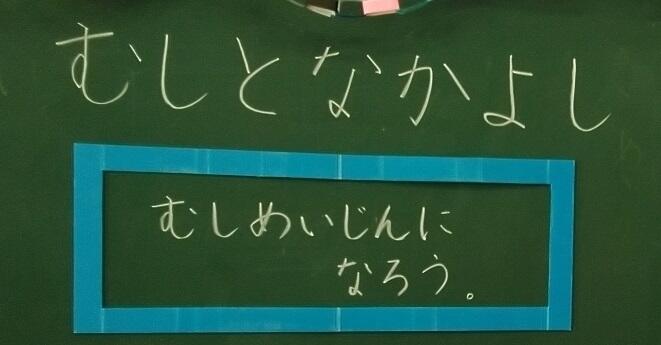 むしとなかよし
むしめいじんに
なろう。